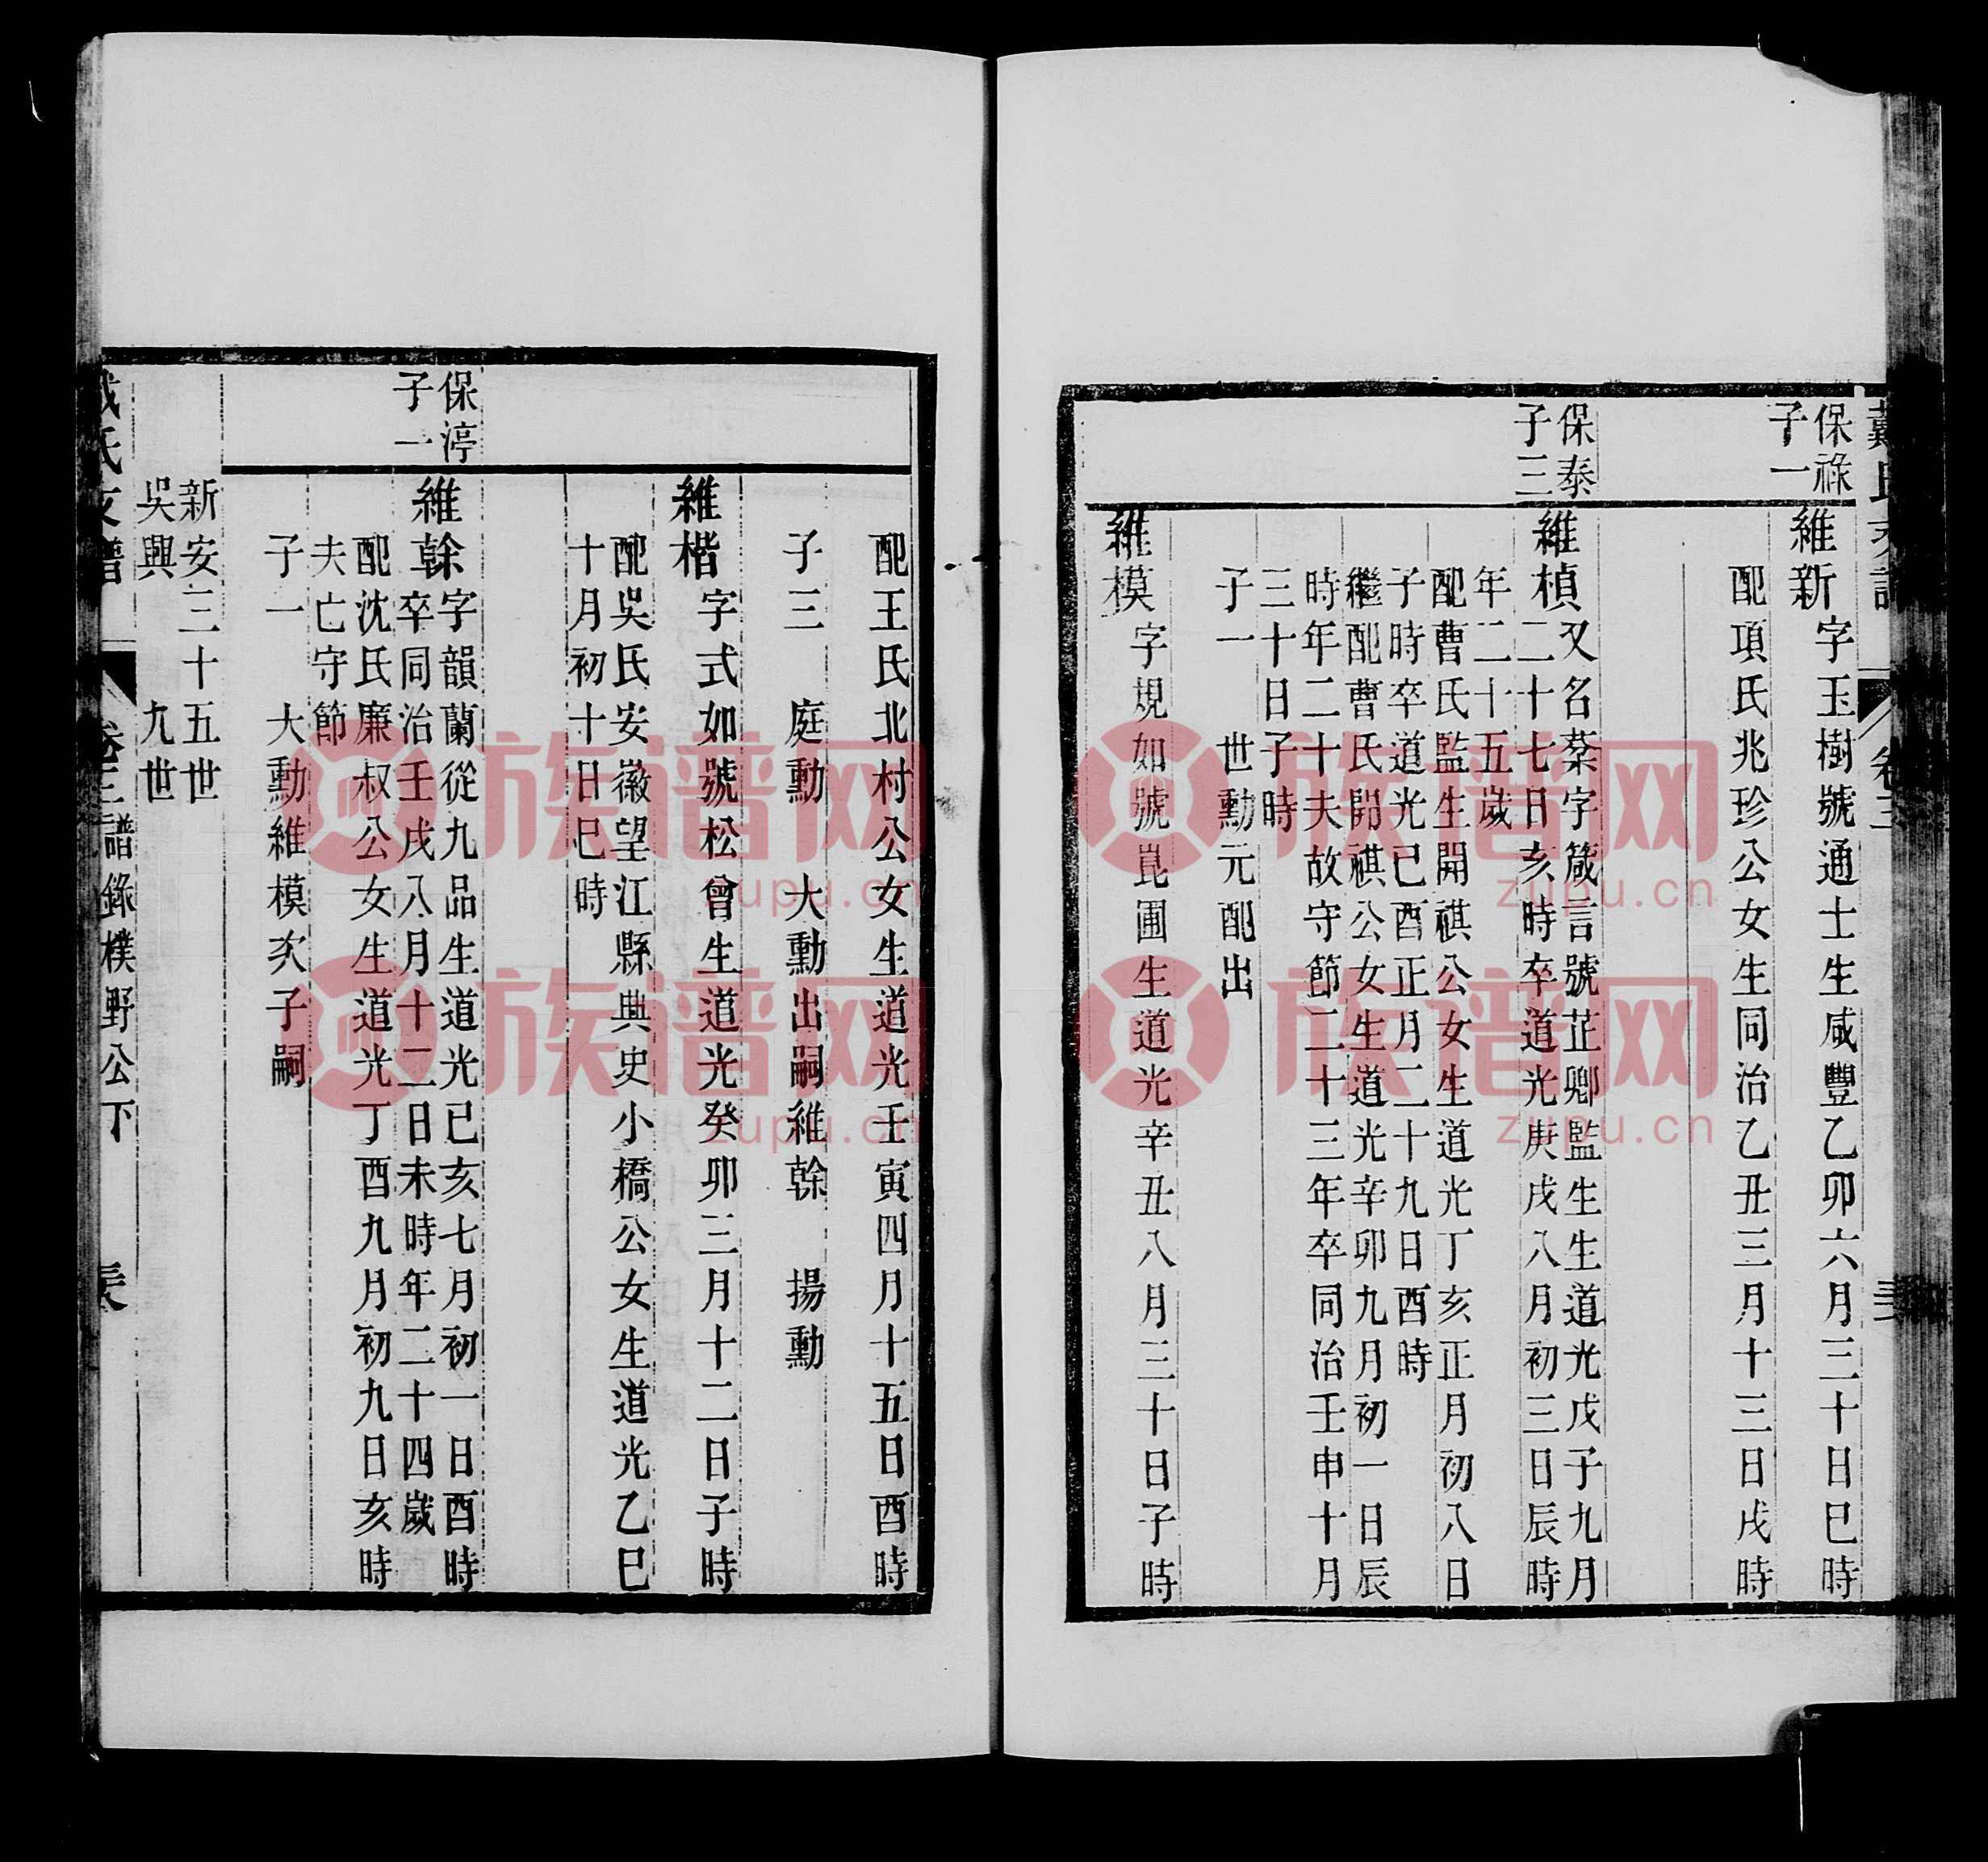 戴氏支譜 卷三
保祿
子一
維新字玉樹號通士生咸豐乙卯六月三十日巳時
配項氏兆珍公女生同治乙丑三月十三日戌時
保泰
子三
維楨又名棻字箴言號芷卿監生生道光戊子九月
二十七日亥時卒道光庚戌八月初三日辰時
年二十五歲
配曹氏監生開祺公女生道光丁亥正月初八日
子時卒道光己酉正月二十九日酉時
繼配曹氏開祺公女生道光辛卯九月初一日辰
時年二十夫故守節二十三年卒同治壬申十月
三十日子時
子一 世勳元配出
維模字規如號崑圃生道光辛丑八月三十日子時
配王氏北村公女生道光壬寅四月十五日酉時
子三 庭勳 大勳出嗣維榦 揚勳
維楷字式如號松曾生道光癸卯三月十二日子時
配吳氏安徽望江縣典史小橋公女生道光乙巳
十月初十日巳時
保渟
子一
維榦字韻蘭從九品生道光己亥七月初一日酉時
卒同治壬戌八月十二日未時年二十四歲
配沈氏廉叔公女生道光丁酉九月初九日亥時
夫亡守節
子一 大勳維模次子嗣
新安三十五世
吳興 九世
戴氏支譜 卷三 譜錄樸野公下
族谱网
zupu.cn
族谱网
zupu.cn
族谱网
zupu.cn
族谱网
zupu.cn